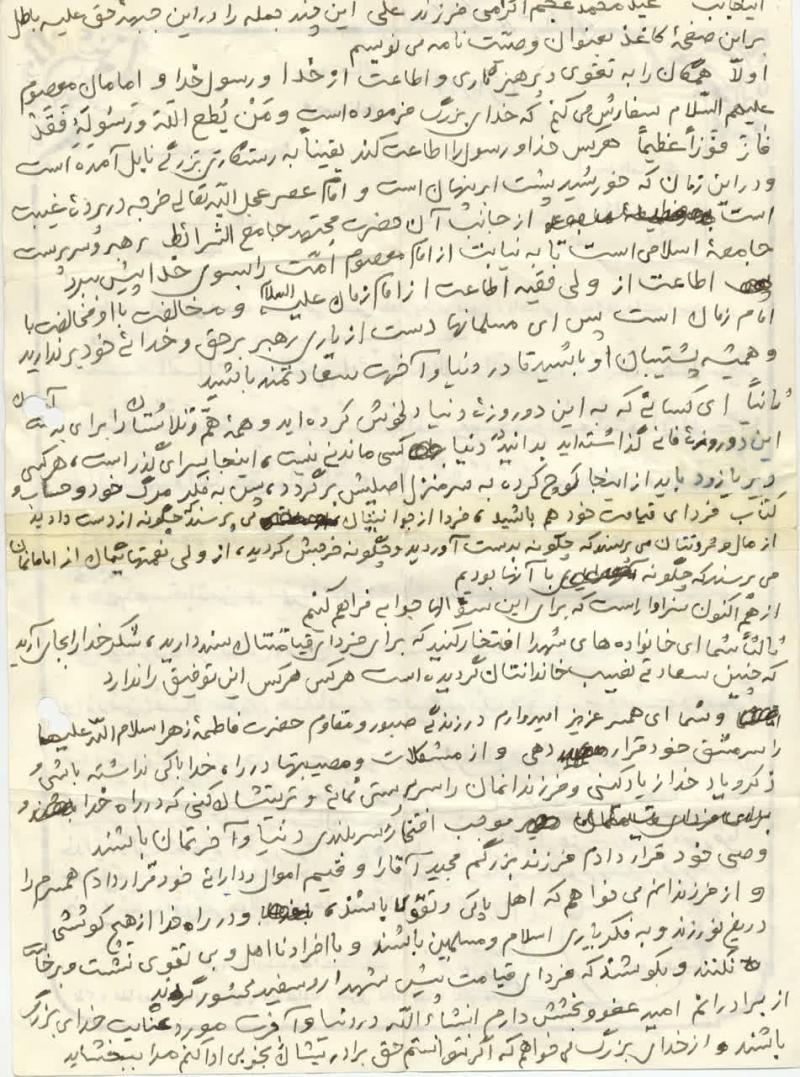 اینجانب عبد محمد عجم اکرامی فرزند علی این چند جمله را در این جبههٔ حق علیه باطل
بر این صفحهٔ کاغذ بعنوان وصیت نامه می نویسم
اولاً همگان را به تقوی و پرهیزکاری و اطاعت از خدا و رسول خدا و امامان معصوم
علیهم السلام سفارش می کنم که خدای بزرگ فرموده است وَمَنْ یُطِعِ اللّهَ وَرَسُولَهُ فَقَدْ
فازَ فَوْزاً عَظیماً هر کس خدا و رسول را اطاعت کند یقیناً به رستگاری بزرگی نایل آمده است
و در این زمان که خورشید پشت ابر پنهان است و امام عصر عجل اللّه تعالی فرجه در پردهٔ غیبت
است از جانب آن حضرت مجتهد جامع الشرائط رهبر و سرپرست
جامعهٔ اسلامی است تا به نیابت از امام معصوم امّت را بسوی خدا پیش ببرد
اطاعت از ولی فقیه اطاعت از امام زمان علیه السلام و مخالفت با او مخالفت با
امام زمان است پس ای مسلمانها دست از یاری رهبر بر حق و خدائی خود برندارید
و همیشه پشتیبان او باشید تا در دنیا و آخرت سعادتمند باشید
ثانیاً ای کسانی که به این دو روزهٔ دنیا دلخوش کرده اید و همهٔ همّ و تلاشتان را برای
این دوروزهٔ فانی گذاشته اید بدانید دنیا کسی ماندنی نیست، اینجا سرای گذر است، هر کسی
دیر یا زود باید از اینجا کوچ کرده به سرمنزل اصلیش برگردد، پس به فکر مرگ خود و حساب و
کتاب فردای قیامت خود هم باشید، فردا از جوانیتان می پرسند چگونه از دست دادید
از مال و ثروتتان می پرسند که چگونه بدست آوردید و چگونه خرجش کردید، از ولی نعمتهایتان از امامانتان
می پرسند که چگونه با آنها بودیم
از هم اکنون سزاوار است که برای این سئوالها جوابی فراهم کنیم
ثالثاً شما ای خانواده های شهدا افتخار کنید که برای فردای قیامتتان سند دارید، شکر خدا را بجای آرید
که چنین سعادتی نصیب خاندانتان گردیده است هر کس هر کس این توفیق را ندارد
و شما ای همسر عزیز امیدوارم در زندگی صبور و مقاوم حضرت فاطمهٔ زهرا سلام اللّه علیها
را سرمشق خود قرار دهی و از مشکلات و مصیبتها در راه خدا باکی نداشته باشی
ذکر و یاد خدا زیاد کنی و فرزندانمان را سرپرستی نمائی و تربیتشان کنی که در راه خدا باشند و
موجب افتخار و سربلندی دنیا و آخرتمان باشند
وصی خود قرار دادم فرزند بزرگم مجید آقا را و قیم اموال و دارائی خود قرار دادم همسرم را
و از فرزندانم می خواهم که اهل پاکی و تقوی باشند، و در راه خدا از هیچ کوششی
دریغ نورزند و به فکر یاری اسلام و مسلمین باشند و با افراد نااهل و بی تقوی نشست و برخاست
نکنند و بکوشند که فردای قیامت پیش شهدا رو سفید محشور گردند
از برادرانم امید عفو و بخشش دارم انشاءُ اللّه در دنیا و آخرت مورد عنایت خدای بزرگ
باشند و از خدای بزرگ می خواهم که اگر نتوانستم حق برادریتشان بخوبی ادا کنم مرا ببخشاید